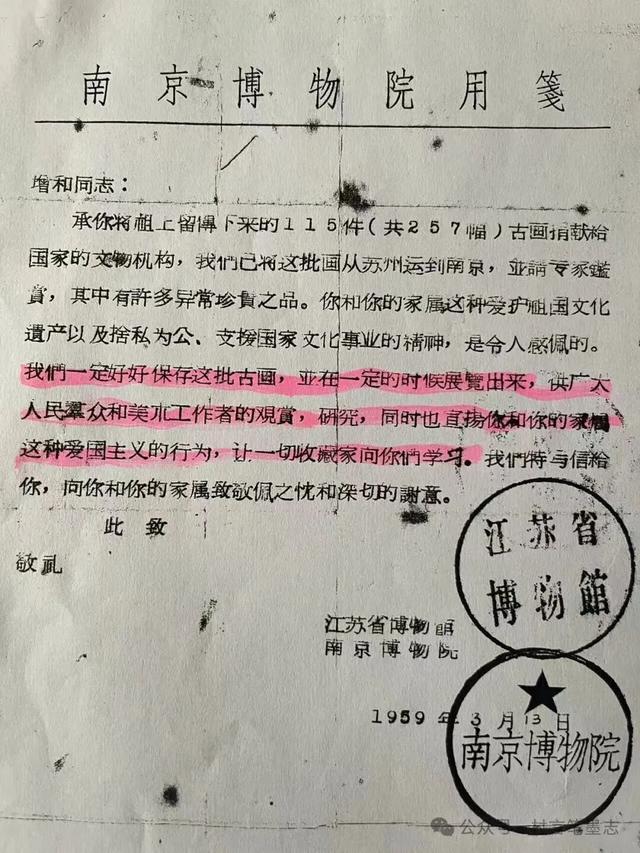 南京博物院用箋
增和同志：
承你将祖上留傳下来的115件(共257幅)古画捐献給
国家的文物机构，我们已将这批画从苏州运到南京，並請专家鑑
賞，其中有許多异常珍貴之品。你和你的家属这种爱护祖国文化
遺产以及捨私为公、支援国家文化事业的精神，是令人感佩的。
我們一定好好保存这批古画，並在一定的时候展覽出来，供广大
人民羣众和美朮工作者的观赏，研究，同时也直揚你和你的家属
这种爱国主义的行为，让一切收藏家向你們学习。我們特与信給
你，向你和你的家属致敬佩之忱和深切的謝意。
此致
敬礼
江苏省博物館
南京博物院
1959年3月13日
江苏省
博物館
南京博物院
公众号
笔墨志